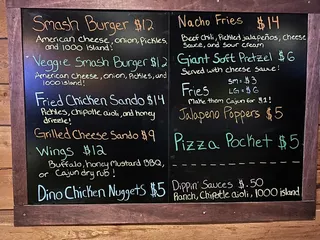 Smash Burger $12
American Cheese, onion, Pickles,
and 1000 Island!
Veggie Smash Burger $12
American Cheese, onion, Pickles, and
1000 island!
Fried Chicken Sando $14
Pickles, Chipotle aioli, and honey
drizzle!
Grilled Cheese Sando $9
Wings $12
Buffalo, honey Mustard BBQ,
or Cajun dry rub!
Dino Chicken Nuggets $5
Nacho Fries $14
Beef Chili, Pickled Jalapeños, Cheese
Sauce, and Sour cream
Giant Soft Pretzel $6
Served with cheese sauce!
Fries sm: $3
LG = $6
Make them Cajun for $1!
Jalapeño Poppers $5
Pizza Pocket $5
Dippin' Sauces $.50
Ranch, Chipotle aioli, 1000 island